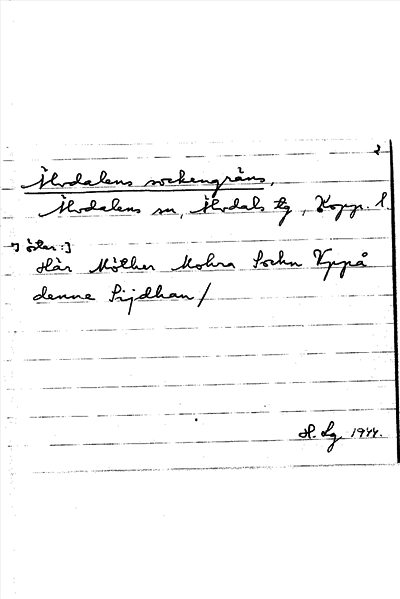 2
Älvdalens sockengräns,
Älvdalens sn, Älvdals tg, Kopp. l.
öster:]
Här Möther Mohra Sochn Vppå
denne Sijdhan /
H. Lg 1944.